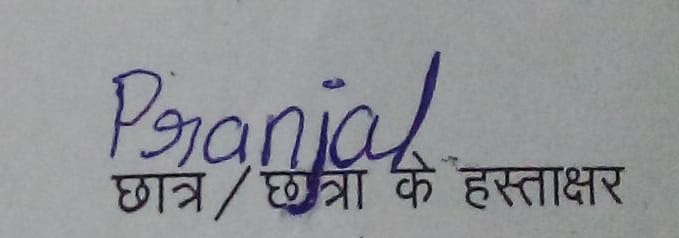 Pranjal
छात्र / छात्रा के हस्ताक्षर